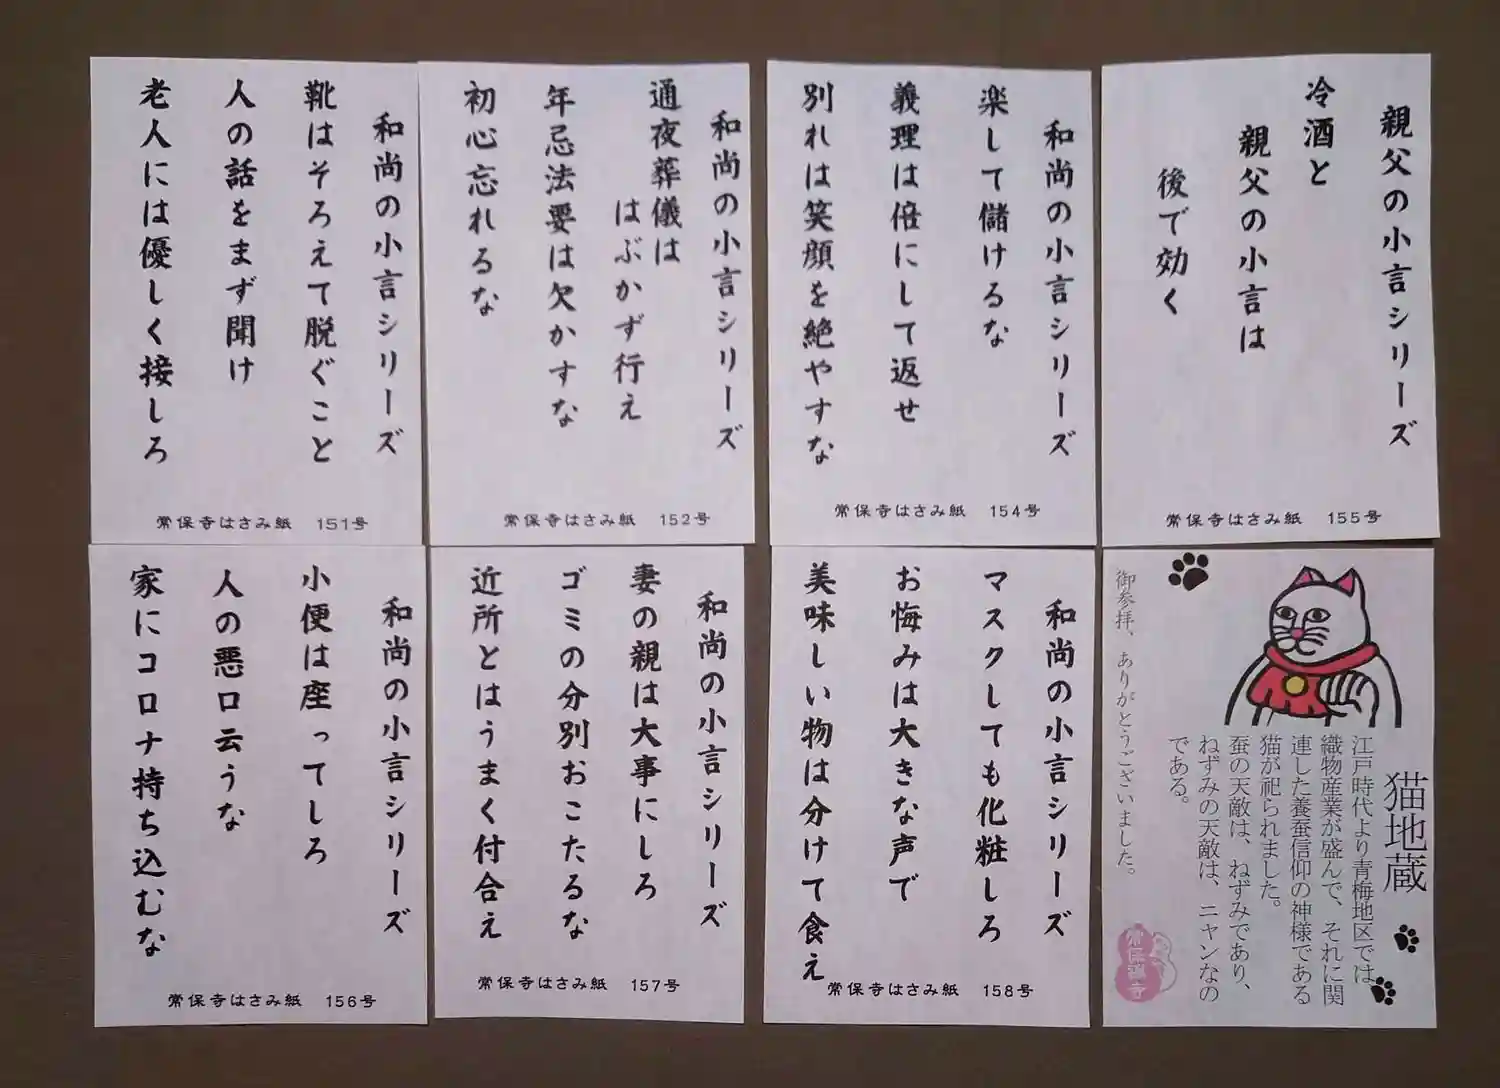 和尚の小言シリーズ
靴はそろえて脱ぐこと
人の話をまず聞け
老人には優しく接しろ
常保寺はさみ紙　151号
和尚の小言シリーズ
通夜葬儀は
はぶかず行え
年忌法要は欠かすな
初心忘れるな
常保寺はさみ紙　152号
和尚の小言シリーズ
楽して儲けるな
義理は倍にして返せ
別れは笑顔を絶やすな
常保寺はさみ紙　154号
親父の小言シリーズ
冷酒と
親父の小言は
後で効く
常保寺はさみ紙　155号
和尚の小言シリーズ
小便は座ってしろ
人の悪口云うな
家にコロナ持ち込むな
常保寺はさみ紙　156号
和尚の小言シリーズ
妻の親は大事にしろ
ゴミの分別おこたるな
近所とはうまく付合え
常保寺はさみ紙　157号
和尚の小言シリーズ
マスクしても化粧しろ
お悔みは大きな声で
美味しい物は分けて食え
常保寺はさみ紙　158号
猫地蔵
江戸時代より青梅地区では
織物産業が盛んで、それに関
連した養蚕信仰の神様である
猫が祀られました。
蚕の天敵は、ねずみであり、
ねずみの天敵は、ニャンなの
である。
御参拝、ありがとうございました。